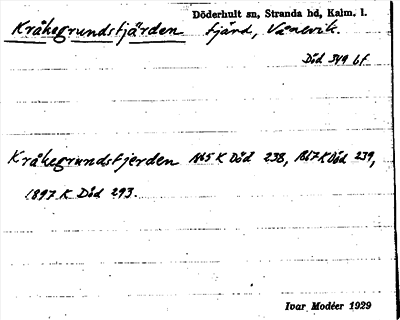 Döderhult sn, Stranda hd, Kalm. l.
Kråkegrundsfjärden fjärd, Vånevik.
Död 349 bf
Kråkegrundsfjerden 1865 K Död 238, 1867 K Död 239,
1897 K Död 293.
Ivar Modéer 1929